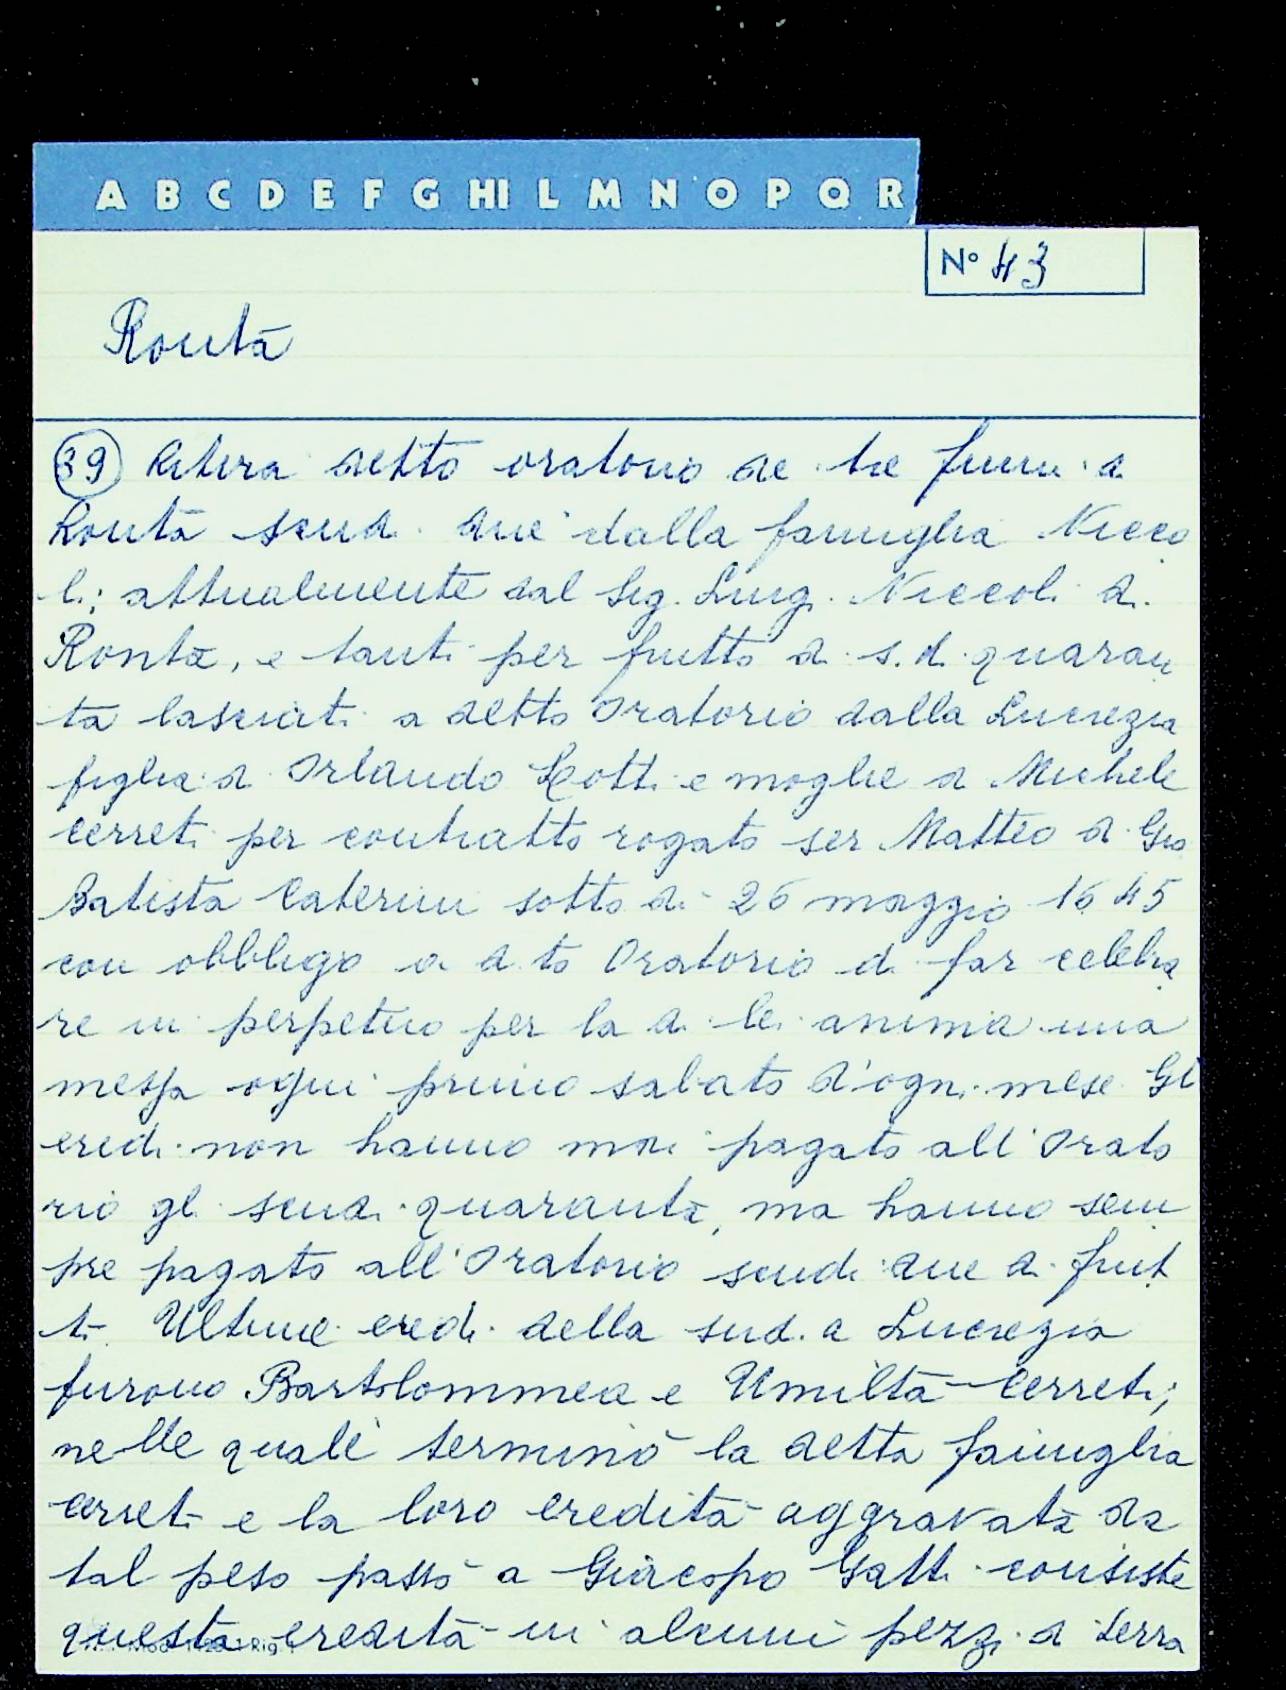 A B C D E F G HI L M N O P Q R
N° 43
Rontà
39 Ritira detto oratorio de tre fiumi di
Rontà scudi due dalla famiglia Nicco
li; attualmente dal Sig. Luigi Niccoli di
Ronta, e tanti per frutto di s.di quaran
ta lasciati a detto Oratorio dalla Lucrezia
figlia di Orlando Lotti e moglie di Michele
Cerreti per contratto rogato ser Matteo di Gio
Batista Caterini sotto di 26 maggio 1645
con obbligo a d.to Oratorio di far celebra
re in perpetuo per la di lei anima una
messa ogni primo sabato d'ogni mese Gl
eredi non hanno mai pagato all'Orato
rio gli scudi quaranta, ma hanno sem
pre pagato all'Oratorio scudi due di frut
ti. Ultime eredi della sud.a Lucrezia
furono Bartolommea e Umiltà Cerreti;
nelle quali terminò la detta famiglia
Cerreti e la loro eredità aggravata da
tal peso passò a Giacopo Gatti consiste
questa eredità in alcuni pezzi di terra